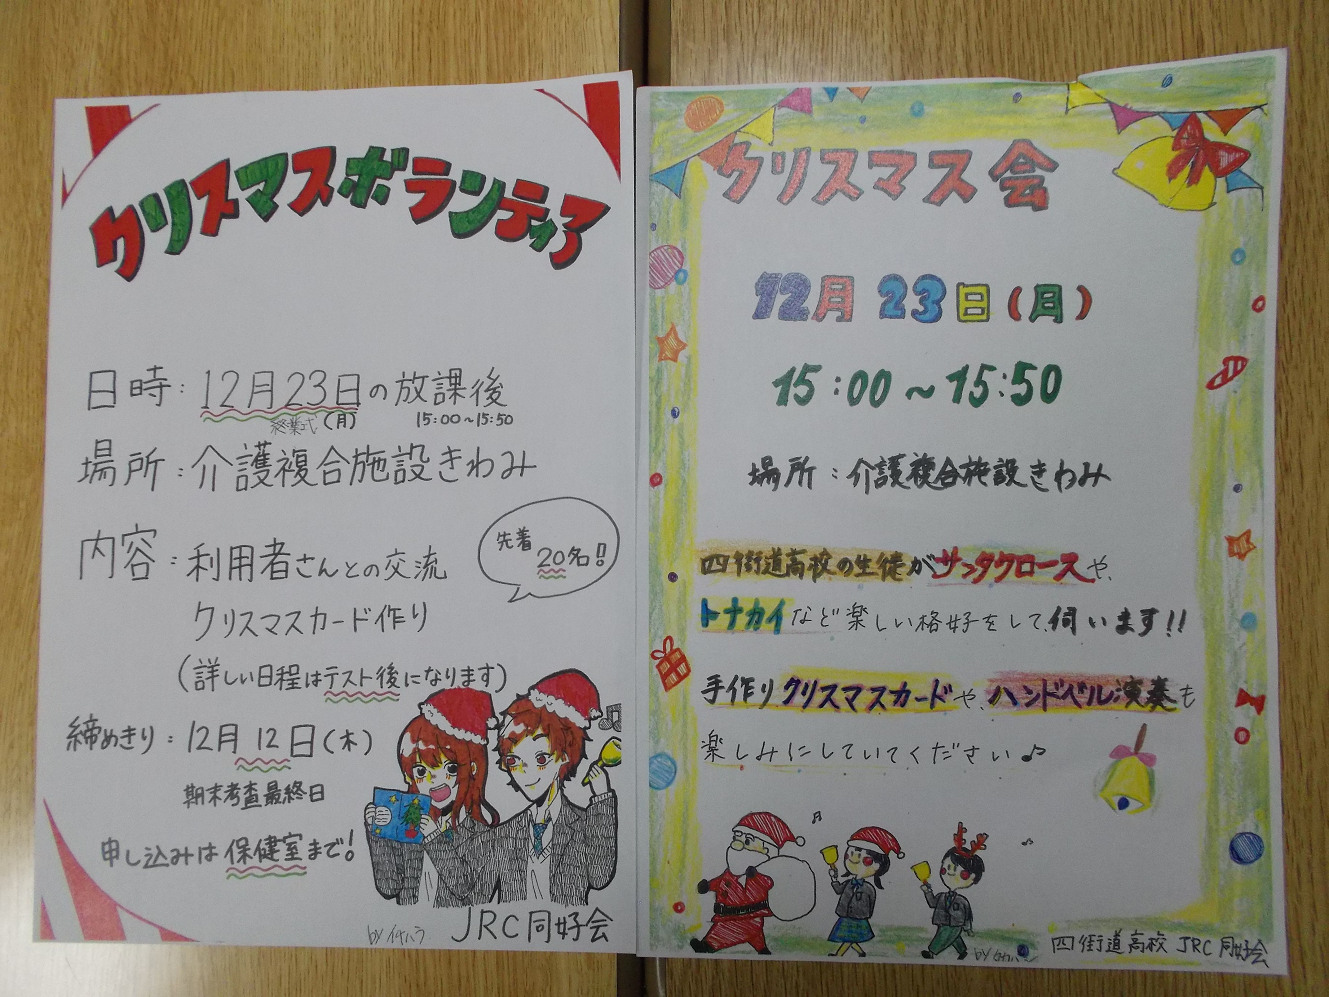 クリスマスボランティア
日時：12月23日の放課後
終業式(月) 15:00～15:50
場所：介護複合施設きわみ
内容：利用者さんとの交流
先着
20名!
クリスマスカード作り
(詳しい日程はテスト後になります)
締めきり：12月12日(木)
期末考査最終日
申し込みは保健室まで!
JRC同好会
クリスマス会
12月23日(月)
15:00～15:50
場所：介護複合施設きわみ
四街道高校の生徒がサンタクロースや、
トナカイなど楽しい格好をして、伺います!!
手作りクリスマスカードや、ハンドベル演奏も
楽しみにしていてください♪
四街道高校 JRC同好会